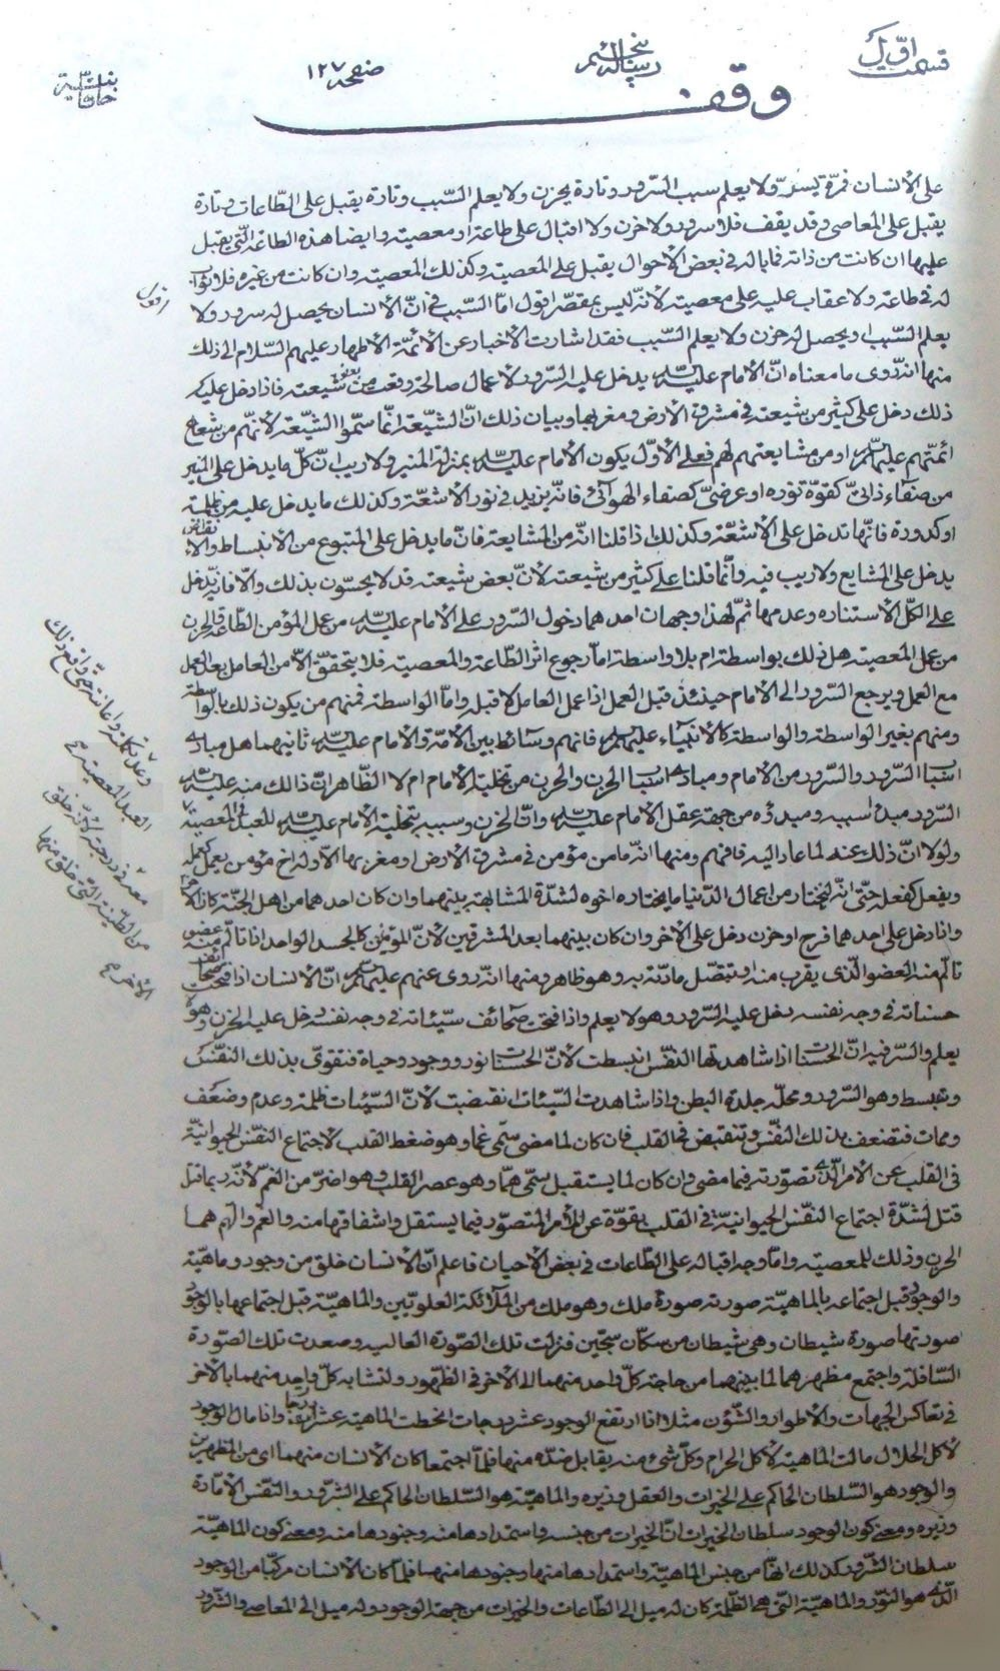 قسمت اوّل
رساله پنجم
صفحه ١٢٧
خاقانیّه
وقف
على الانسان فمرّة يسرّ ولا يعلم سبب السّرور وتارة يحزن ولا يعلم السّبب وتارة يقبل على الطّاعات وتارة
يقبل على المعاصى وقد يقف فلا سرور ولا حزن ولا اقبال على طاعة او معصية وايضا هذه الطاعة الّتى يقبل
عليها ان كانت من ذاته فما باله فى بعض الاحوال يقبل على المعصية وكذلك المعصية وان كانت من غيره فلا ثواب
له فى طاعة ولا عقاب عليه على معصية لانّه ليس بمقصّر اقول امّا السّبب فى انّ الانسان يحصل له سرور ولا
يعلم السّبب او يحصل له حزن ولا يعلم السّبب فقد اشارت الاخبار عن الائمّة الاطهار عليهم السّلام الى ذلك
منها انه روى ما معناه انّ الامام عليه السلام يدخل عليه السّرور لاعمال صالحة وقعت من بعض شيعته فاذا دخل عليه
ذلك دخل على كثير من شيعته فى مشرق الارض ومغربها وبيان ذلك انّ الشيّعة انّما سمّوا الشّيعة لانّهم من شعاع
ائمّتهم عليهم السلام او من مشايعتهم لهم فعلى الاوّل يكون الامام عليه السلام بمنزلة المنير ولا ريب انّ كلّ ما يدخل على المنير
من صفاء ذاتىّ كقوّة نوره او عرضىّ كصفاء الهوآئ فانّه يزيد فى نور الاشعّة وكذلك ما يدخل عليه من ظلمة
او كدورة فانّها تدخل على الاشعّة وكذلك اذا قلنا انّه من المشايعة فانّ ما يدخل على المتبوع من الانبساط والانقباض
يدخل على المشايع ولا ريب فيه وانّما قلنا على كثير من شيعته لانّ بعض شيعته قد لا يحسّون بذلك والّا فانه يدخل
على الكلّ الاستناره وعدمها ثمّ لهذا وجهان احدهما دخول السّرور على الامام عليه السلام من عمل المؤمن الطّاعة والحزن
من عمل المعصية هل ذلك بواسطة ام بلا واسطة امّا رجوع اثر الطّاعة والمعصية فلا يتحقّق الّا من العامل بعد العمل
مع العمل ويرجع السّرور الى الامام حينئذ قبل العمل اذا عمل العامل لا قبل وامّا الواسطة فمنهم من يكون ذلك بالواسطة
ومنهم بغير الواسطة والواسطة كالانبيآء عليهم السلام فانهم وسائط بين الامّة والامام عليه السلام ثانيهما هل مبادى
اسباب السّرور والسّرور من الامام ومبادى اسباب الحزن والحزن من تخلية الامام ام لا الظّاهر انّ ذلك منه عليه السلام
السّرور مبدأ سببه ومبدؤه من جهة عقل الامام عليه السلام وانّ الحزن وسببه بتخلية الامام عليه السلام للعبد فى المعصية
ولولا انّ ذلك عنه لما عاد اليه فافهم ومنها انّه ما من مؤمن فى مشرق الارض او مغربها الّا وله اخ مؤمن يعمل كعمله
ويفعل كفعله حتّى انّه ليختار من اعمال الدّنيا ما يختاره اخوه لشدّة المشابهة بينهما وان كان احدهما من اهل الجنّة كان الاخر
واذا دخل على احدهما فرح او حزن دخل على الاخر وان كان بينهما بعد المشرقين لانّ المؤمنين كالجسد الواحد اذا تألّم منه عضو
تألّم منه العضو الّذى يقرب منه او تتّصل مادّته به وهو ظاهر ومنها انّه روى عنهم عليهم السلام انّ الانسان اذا فتحت صحائف
حسناته فى وجه نفسه دخل عليه السّرور وهو لا يعلم واذا فتحت صحائف سيّئاته فى وجه نفسه دخل عليه الحزن وهو لا
يعلم والسّر فيه انّ الحسنات اذا شاهدتها النّفس انبسطت لانّ الحسنات نور ووجود وحياة فتقوىّ بذلك النّفس
وتنبسط وهو السّرور ومحلّه جلدة البطن واذا شاهدت السّيئات انقبضت لانّ السّيّئات ظلمة وعدم وضعف
وممات فتضعف بذلك النّفس وتنقبض فى القلب فان كان لما مضى سمّى غما وهو ضغط القلب لاجتماع النّفس الحيوانيّة
فى القلب عن الامر الّذى تصوّرته فيما مضى وان كان لما يستقبل سمّى همّا وهو عصر القلب وهو اضرّ من الغمّ لانّه ربما قتل
قتل لشدّة اجتماع النّفس الحيوانيّة فى القلب بقوّة عن الامر المتصوّر فيما يستقبل واشفاقها منه والغم والهم هما
الحزن وذلك للمعصية وامّا وجه اقباله على الطّاعات فى بعض الاحيان فاعلم انّ الانسان خلق من وجود وماهيّة
والوجود قبل اجتماعه بالماهيّة صورته صورة ملك وهو ملك من الملآئكة العلويّين والماهيّة قبل اجتماعها بالوجود
صورتها صورة شيطان وهى شيطان من سكّان سجّين فنزلت تلك الصّورة العالية وصعدت تلك الصّورة
السّافلة واجتمع مظهرهما لما بينهما من حاجة كلّ واحد منهما الى الاخر فى الظّهور ولتشابه كلّ واحد منهما بالاخر
فى تعاكس الجهات والاطوار والشّؤن مثلا اذا ارتفع الوجود عشر درجات انحطت الماهية عشر درجات واذا مال الوجود
لاكل الحلال مالت الماهية لاكل الحرام وكلّ شىء منه يقابل ضدّه منها فلمّا اجتمعا كان الانسان منهما اى من المظهرين
والوجود هو السّلطان الحاكم على الخيرات والعقل وزيره والماهيّة هو السّلطان الحاكم على الشّرور والنّفس الامّارة
وزيره ومعنى كون الوجود سلطان الخيرات انّ الخيرات من جنسه واستمدادها منه وجنودها منه ومعنى كون الماهيّة
سلطان الشّرور كذلك انّها من جنس الماهيّة واستمدادها منها وجنودها منها فلمّا كان الانسان مركّبا من الوجود
الّذى هو النّور والماهيّة الّتى هى الظّلمة كان له ميل الى الطّاعات والخيرات من جهة الوجود وله ميل الى المعاصى والشّرور